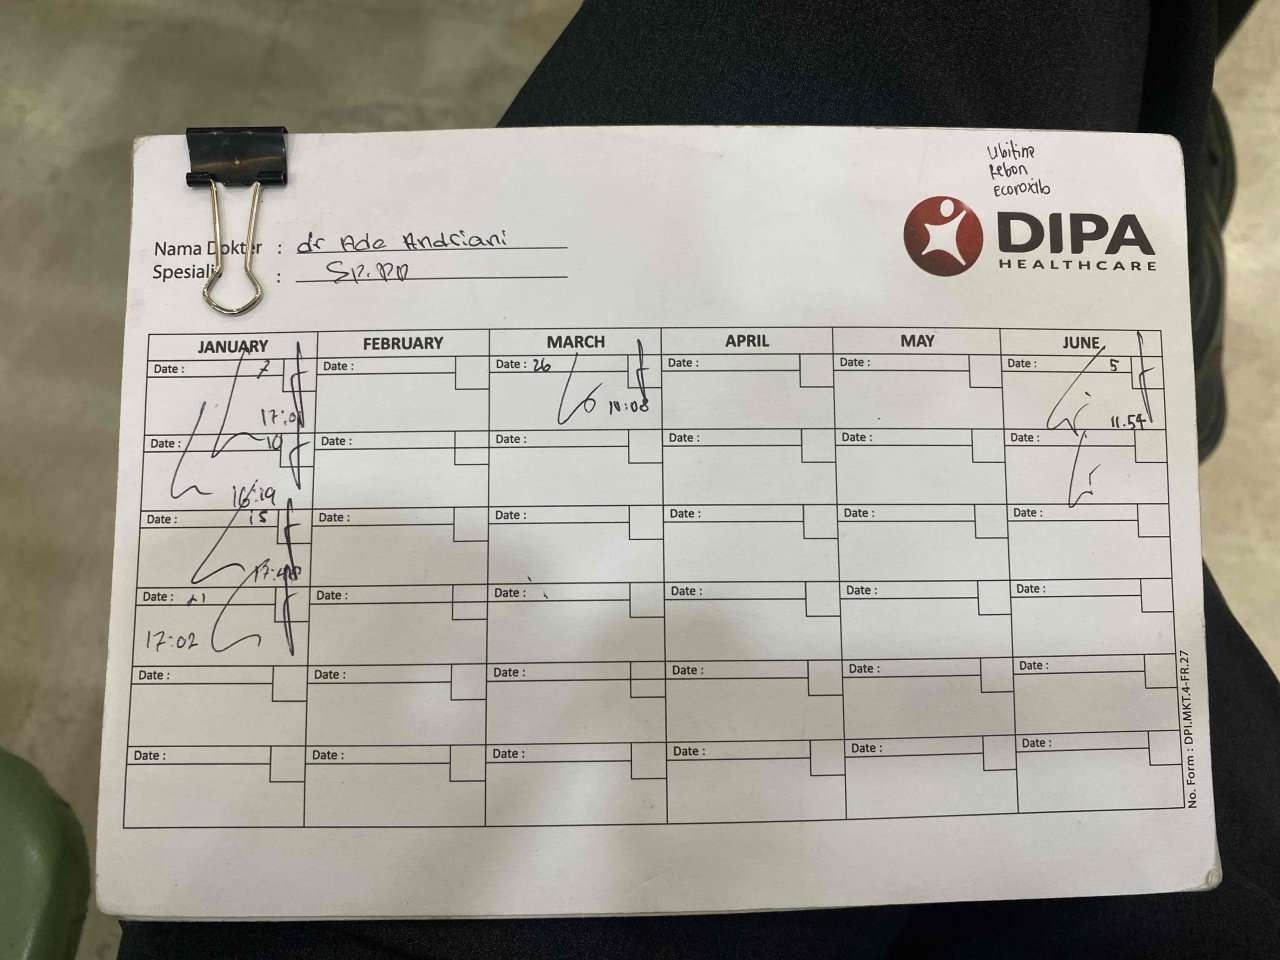 Ubitine
Rebon
Ecoroxib
DIPA
HEALTHCARE
Nama Dokter : dr Ade Andriani
Spesiali : Sp.PD
JANUARY FEBRUARY MARCH APRIL MAY JUNE
Date : 7 Date : Date : 26 Date : Date : Date : 5
17:0 10:08 11.54
Date : 10 Date : Date : Date : Date : Date :
16:19
Date : 15 Date : Date : Date : Date : Date :
17:48
Date : 21 Date : Date : Date : Date : Date :
17:02
Date : Date : Date : Date : Date : Date :
Date : Date : Date : Date : Date : Date :
No. Form : DPI.MKT.4-FR.27